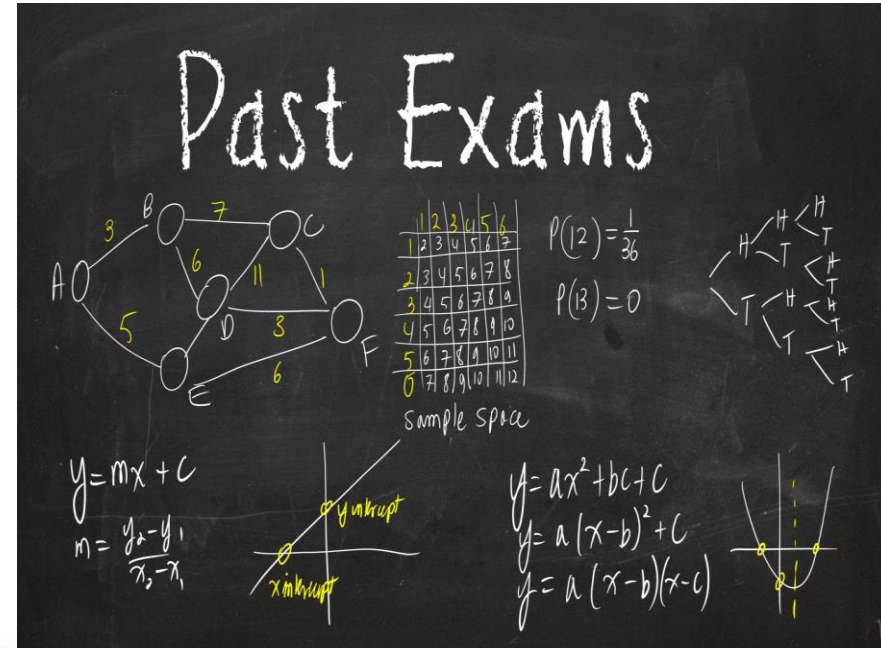 Past Exams
A
3
B
7
C
6
11
1
5
D
3
F
6
E
1 2 3 4 5 6
1 2 3 4 5 6 7
2 3 4 5 6 7 8
3 4 5 6 7 8 9
4 5 6 7 8 9 10
5 6 7 8 9 10 11
0 7 8 9 10 11 12
sample space
P(12)=1/36
P(13)=0
H
H
H
T
T
H
T
T
H
H
T
T
H
T
y=mx+c
m=y₂-y₁/x₂-x₁
y interkept
x interkept
y=ax²+bc+c
y=a(x-b)²+c
y=a(x-b)(x-c)